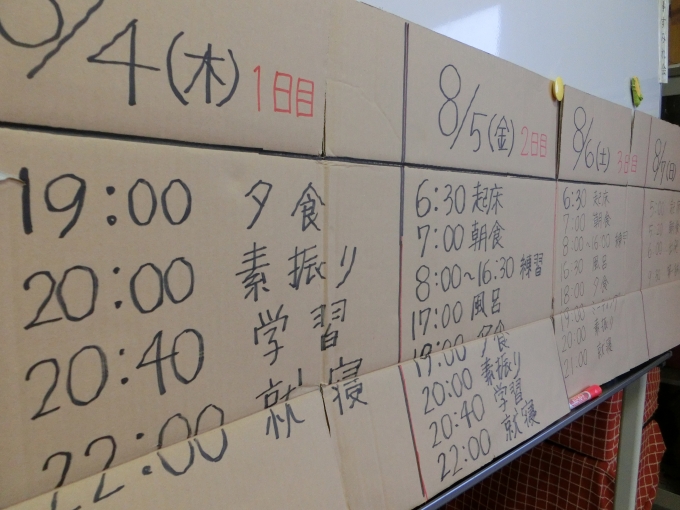 /4(木) 1日目
19:00 夕食
20:00 素振り
20:40 学習
22:00 就寝
8/5(金) 2日目
6:30 起床
7:00 朝食
8:00~16:30 練習
17:00 風呂
19:00 夕食
20:00 素振り
20:40 学習
22:00 就寝
8/6(土) 3日目
6:30 起床
7:00 朝食
8:00~16:00 練習
16:30 風呂
18:00 夕食
19:00
20:00 素振り
21:00 就寝
8/7(日)